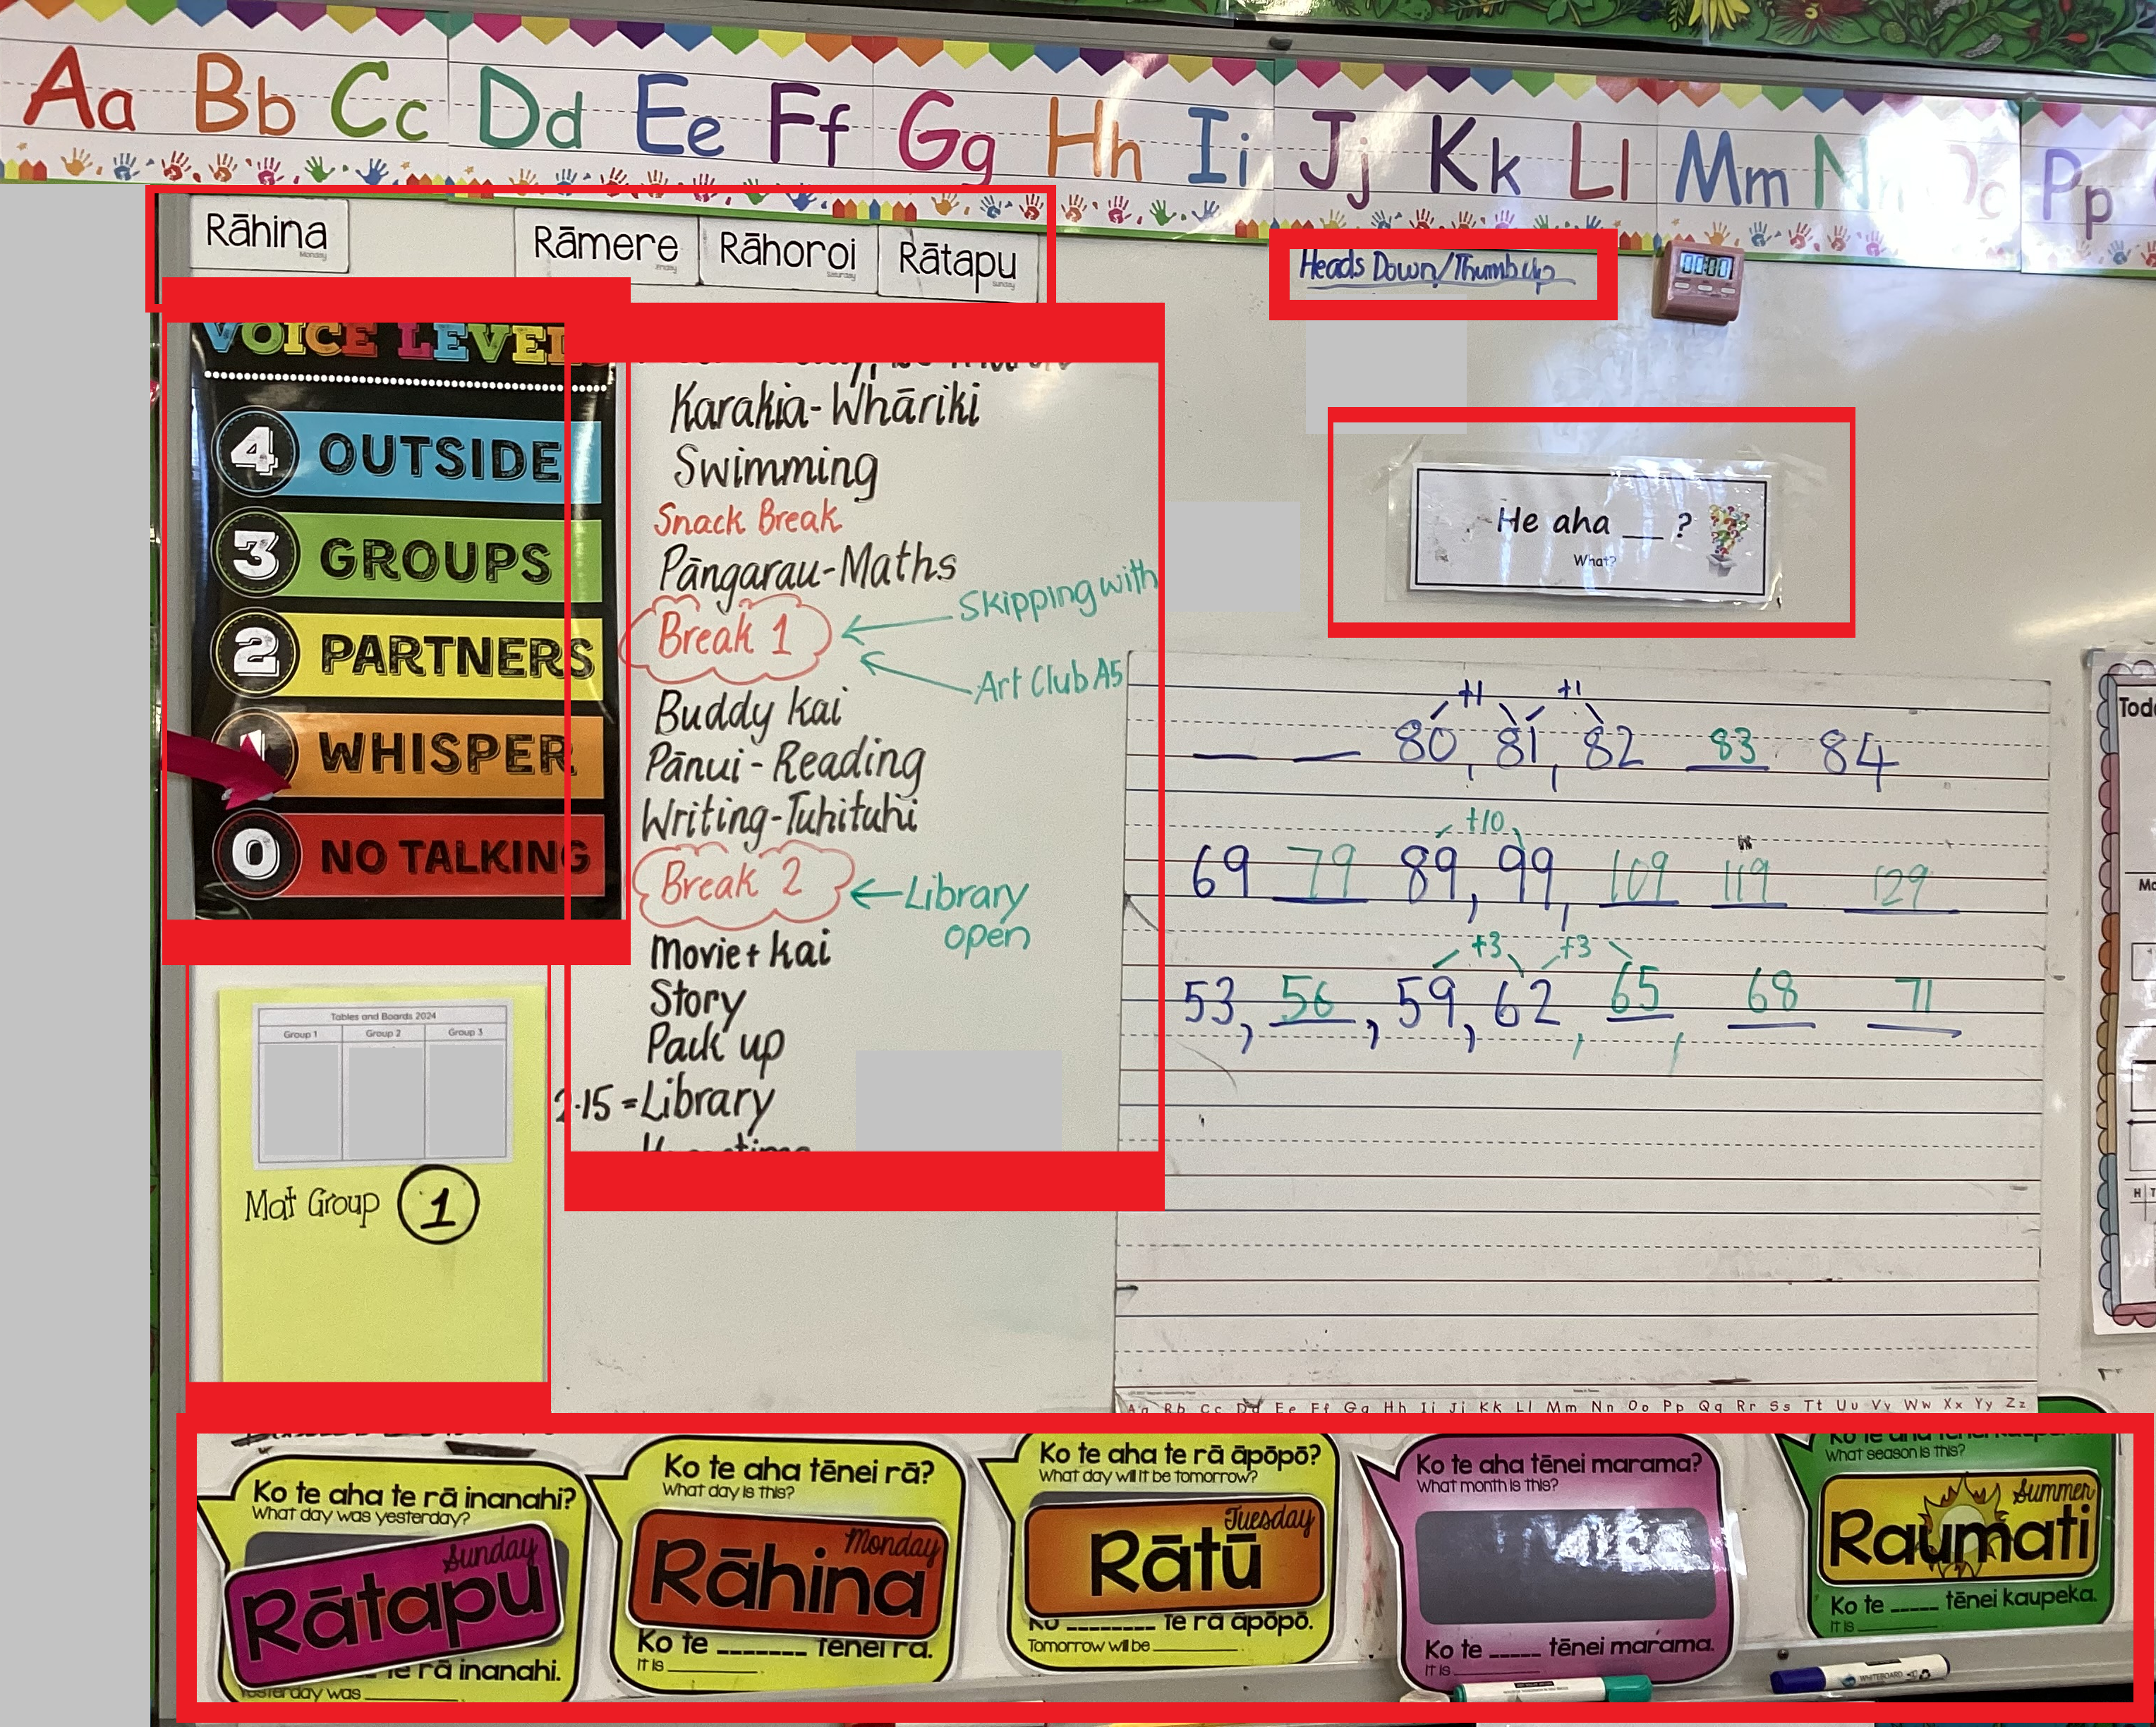 Aa Bb Cc Dd Ee Ff Gg Hh Ii Jj Kk Ll Mm Pp
Rāhina
Monday
Rāmere
Friday
Rāhoroi
Saturday
Rātapu
Sunday
Heads Down/Thumbs Up
00:00
VOICE LEVEL
4 OUTSIDE
3 GROUPS
2 PARTNERS
1 WHISPER
0 NO TALKING
Karakia-Whāriki
Swimming
Snack Break
Pāngarau-Maths
Break 1
Skipping with
Art Club A5
Buddy kai
Pānui - Reading
Writing-Tuhituhi
Break 2
Library
open
Movie + kai
Story
Pack up
2.15 = Library
He aha ___ ?
What?
+1 +1
__ __ 80, 81, 82 83 84
+10
69 79 89, 99, 109 119 129
+3 +3
53, 56, 59, 62, 65, 68 71
Aa Bb Cc Dd Ee Ff Gg Hh Ii Jj Kk Ll Mm Nn Oo Pp Qq Rr Ss Tt Uu Vv Ww Xx Yy Zz
Tables and Boards 2024
Group 1 Group 2 Group 3
Mat Group 1
Ko te aha te rā inanahi?
What day was yesterday?
Sunday
Rātapu
te rā inanahi.
Yesterday was ________
Ko te aha tēnei rā?
What day is this?
Monday
Rāhina
Ko te _______ tēnei rā.
It is ________.
Ko te aha te rā āpōpō?
What day will it be tomorrow?
Tuesday
Rātū
Ko _______ te rā āpōpō.
Tomorrow will be ________.
Ko te aha tēnei marama?
What month is this?
Ko te _____ tēnei marama.
It is ________.
What season is this?
Summer
Raumati
Ko te _____ tēnei kaupeka.
It is ________.
WHITEBOARD